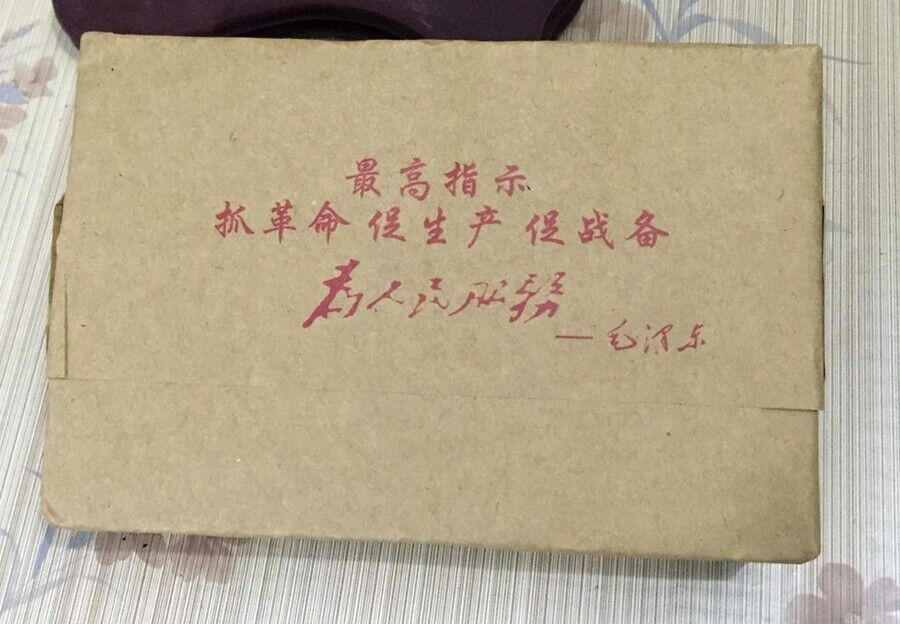 最高指示
抓革命 促生产 促战备
为人民服務
—毛泽东